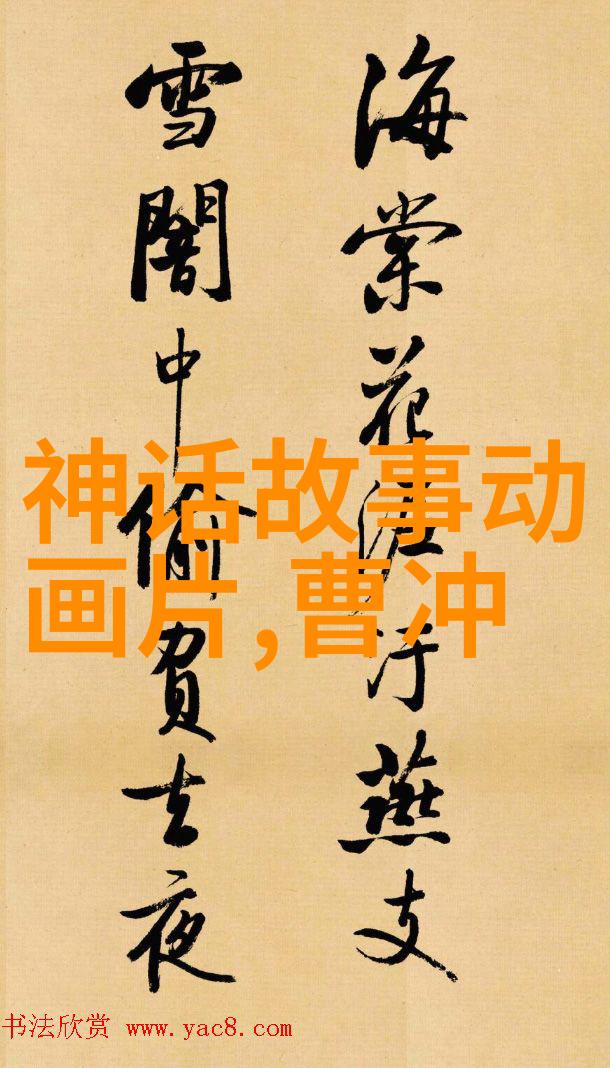 海棠花泥汙燕支
雪闇中偷負去夜
神话故事动
画片,曹冲
书法欣赏 www.yac8.com